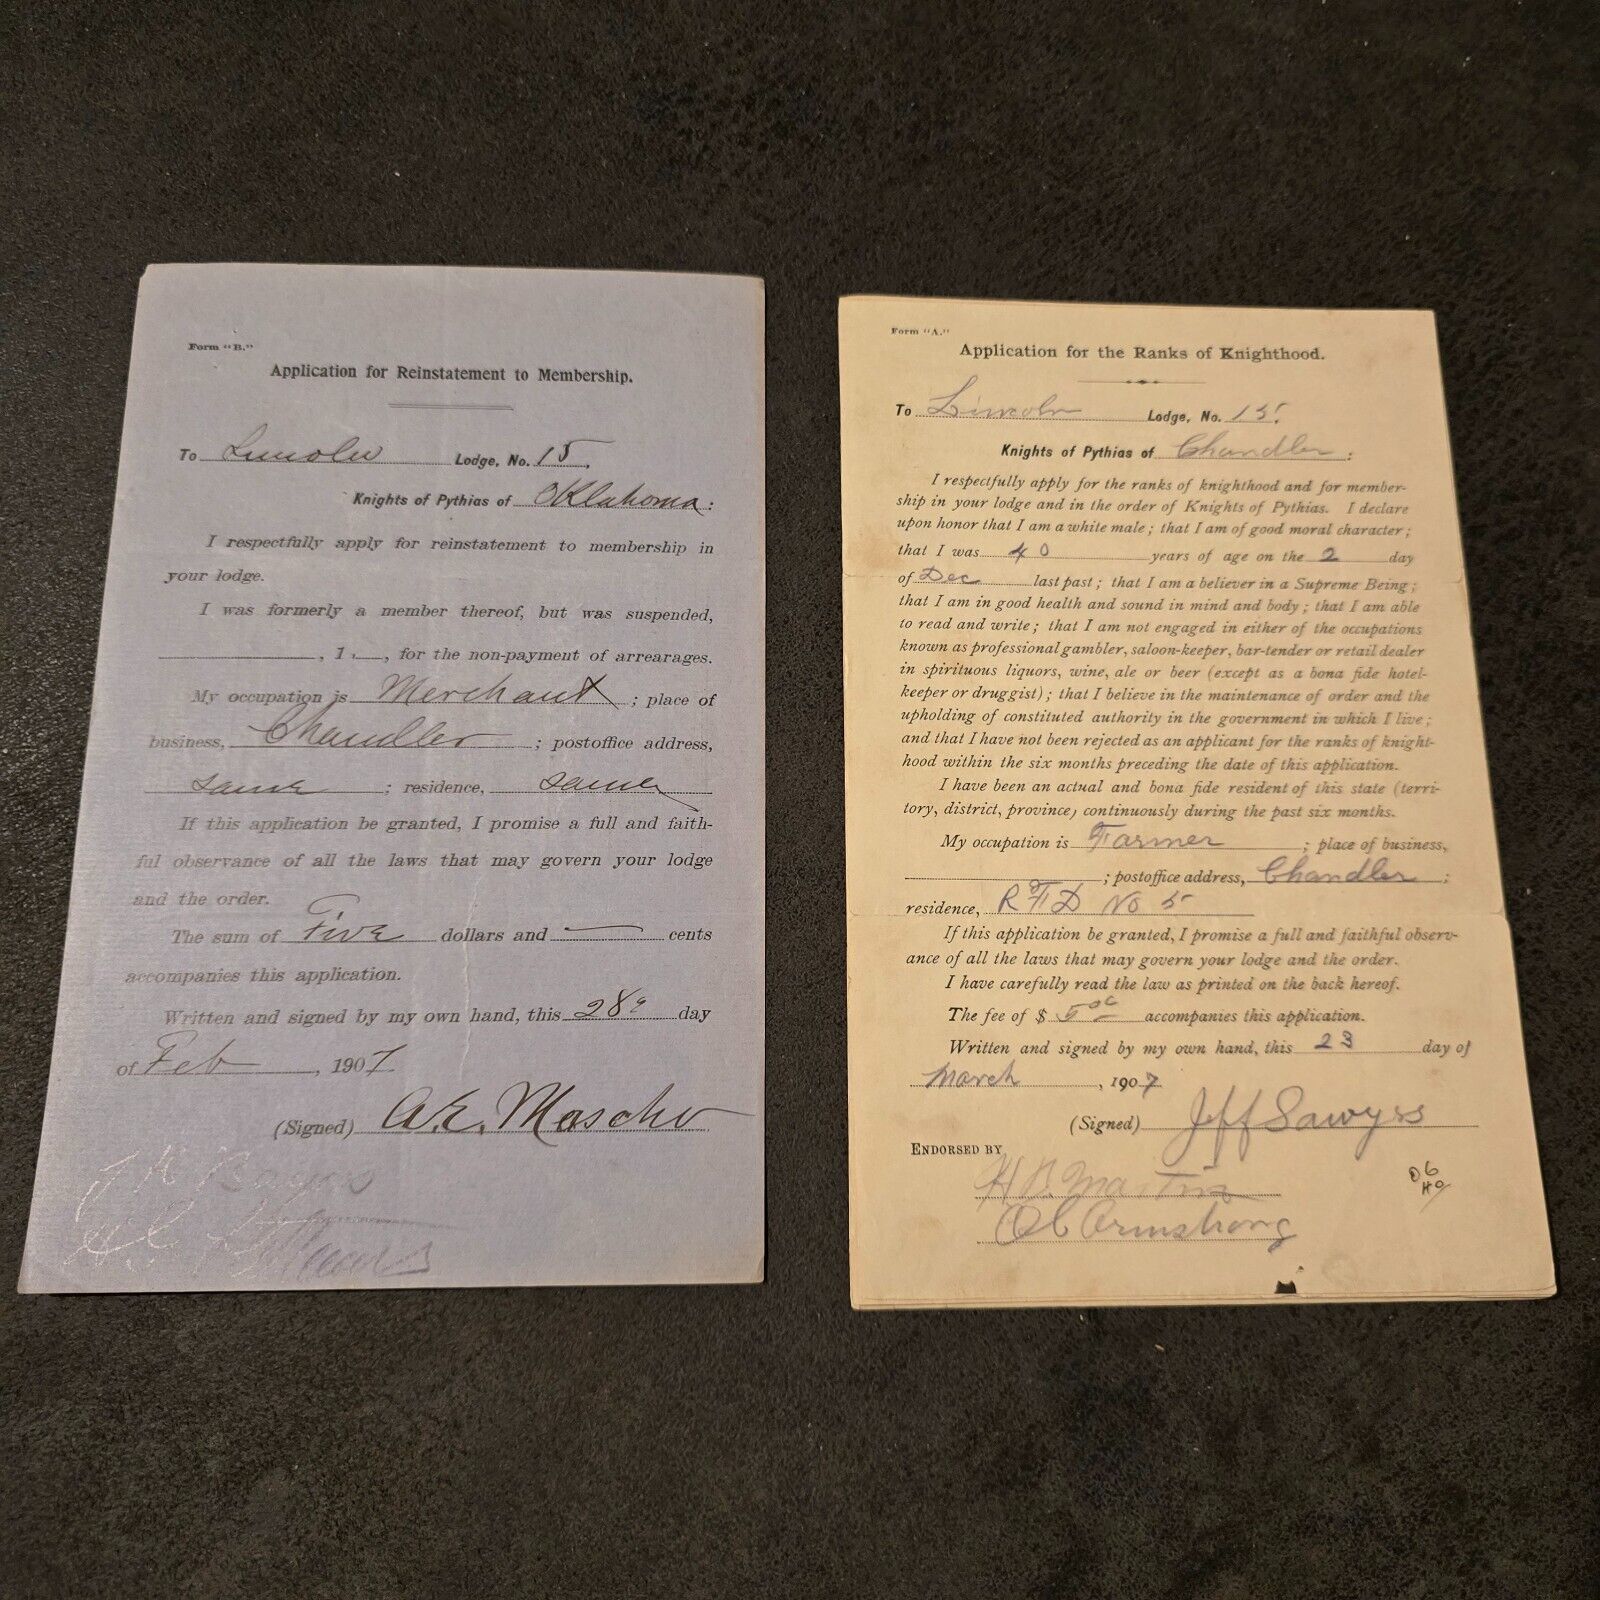 Form "B."
Application for Reinstatement to Membership.
To Lincoln Lodge, No. 15.
Knights of Pythias of Oklahoma:
I respectfully apply for reinstatement to membership in
your lodge.
I was formerly a member thereof, but was suspended,
, 1 , for the non-payment of arrearages.
My occupation is Merchant ; place of
business, Chandler ; postoffice address,
same ; residence, same
If this application be granted, I promise a full and faith-
ful observance of all the laws that may govern your lodge
and the order.
The sum of Five dollars and — cents
accompanies this application.
Written and signed by my own hand, this 28 day
of Feb , 1907
(Signed) A. E. Mascho
Form "A."
Application for the Ranks of Knighthood.
To Lincoln Lodge, No. 15.
Knights of Pythias of Chandler :
I respectfully apply for the ranks of knighthood and for member-
ship in your lodge and in the order of Knights of Pythias. I declare
upon honor that I am a white male; that I am of good moral character;
that I was 40 years of age on the 2 day
of Dec last past; that I am a believer in a Supreme Being;
that I am in good health and sound in mind and body; that I am able
to read and write; that I am not engaged in either of the occupations
known as professional gambler, saloon-keeper, bar-tender or retail dealer
in spirituous liquors, wine, ale or beer (except as a bona fide hotel-
keeper or druggist); that I believe in the maintenance of order and the
upholding of constituted authority in the government in which I live;
and that I have not been rejected as an applicant for the ranks of knight-
hood within the six months preceding the date of this application.
I have been an actual and bona fide resident of this state (terri-
tory, district, province) continuously during the past six months.
My occupation is Farmer ; place of business,
; postoffice address, Chandler ;
residence, R F D No 5
If this application be granted, I promise a full and faithful observ-
ance of all the laws that may govern your lodge and the order.
I have carefully read the law as printed on the back hereof.
The fee of $ 5 00 accompanies this application.
Written and signed by my own hand, this 23 day of
March , 1907
(Signed) Jeff Sawyers
ENDORSED BY
H B Martin
O C Armstrong